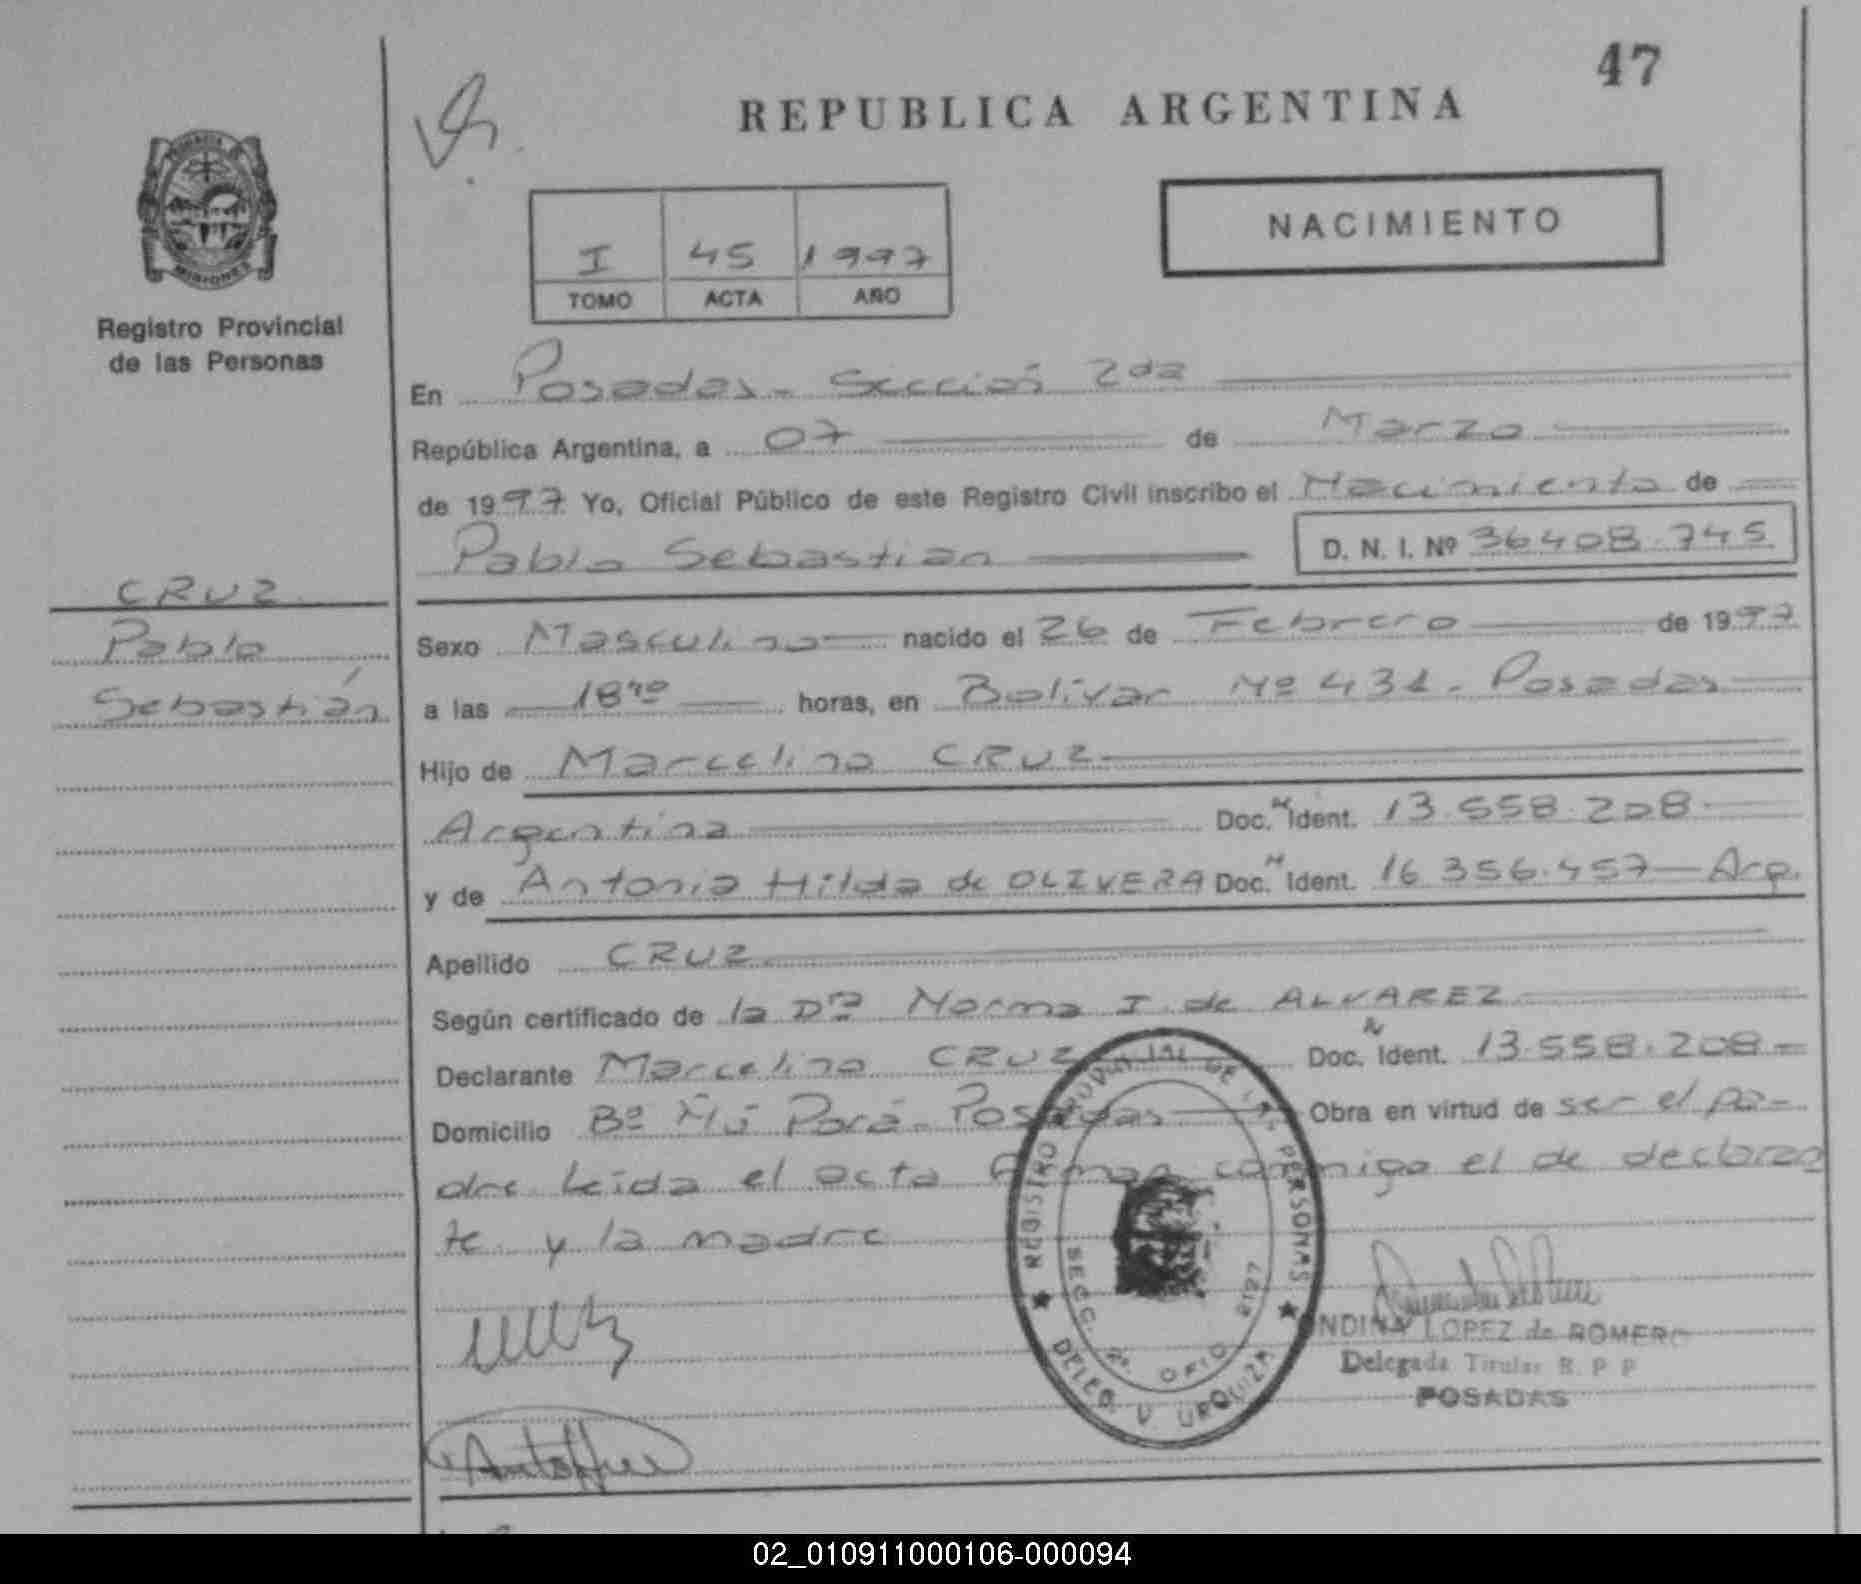 47
REPUBLICA ARGENTINA
NACIMIENTO
I 45 1997
TOMO ACTA AÑO
PROVINCIA DE
MISIONES
Registro Provincial
de las Personas
CRUZ
Pablo
Sebastián
En Posadas - Sección 2da
República Argentina, a 07 de Marzo
de 1997 Yo, Oficial Público de este Registro Civil inscribo el Nacimiento de
Pablo Sebastian D. N. I. Nº 36408.745
Sexo Masculino nacido el 26 de Febrero de 1997
a las 18 horas, en Bolivar Nº 431 - Posadas
Hijo de Marcelino CRUZ
Argentina Doc. N Ident. 13.558.208
y de Antonia Hilda de OLIVERA Doc. N Ident. 16.356.457 Arg.
Apellido CRUZ
Según certificado de la Dra Norma I. de ALVAREZ
Declarante Marcelino CRUZ Doc. N Ident. 13.558.208
Domicilio Bº Ñú Porá - Posadas Obra en virtud de ser el pa-
dre Leida el acta firman conmigo el de declaran
te y la madre
REGISTRO PROVINCIAL DE LAS PERSONAS
SECC. 2ª OFIC 2127
DELEG. V. URQUIZA
ONDINA LOPEZ de ROMERO
Delegada Titular R. P. P
POSADAS
02_010911000106-000094